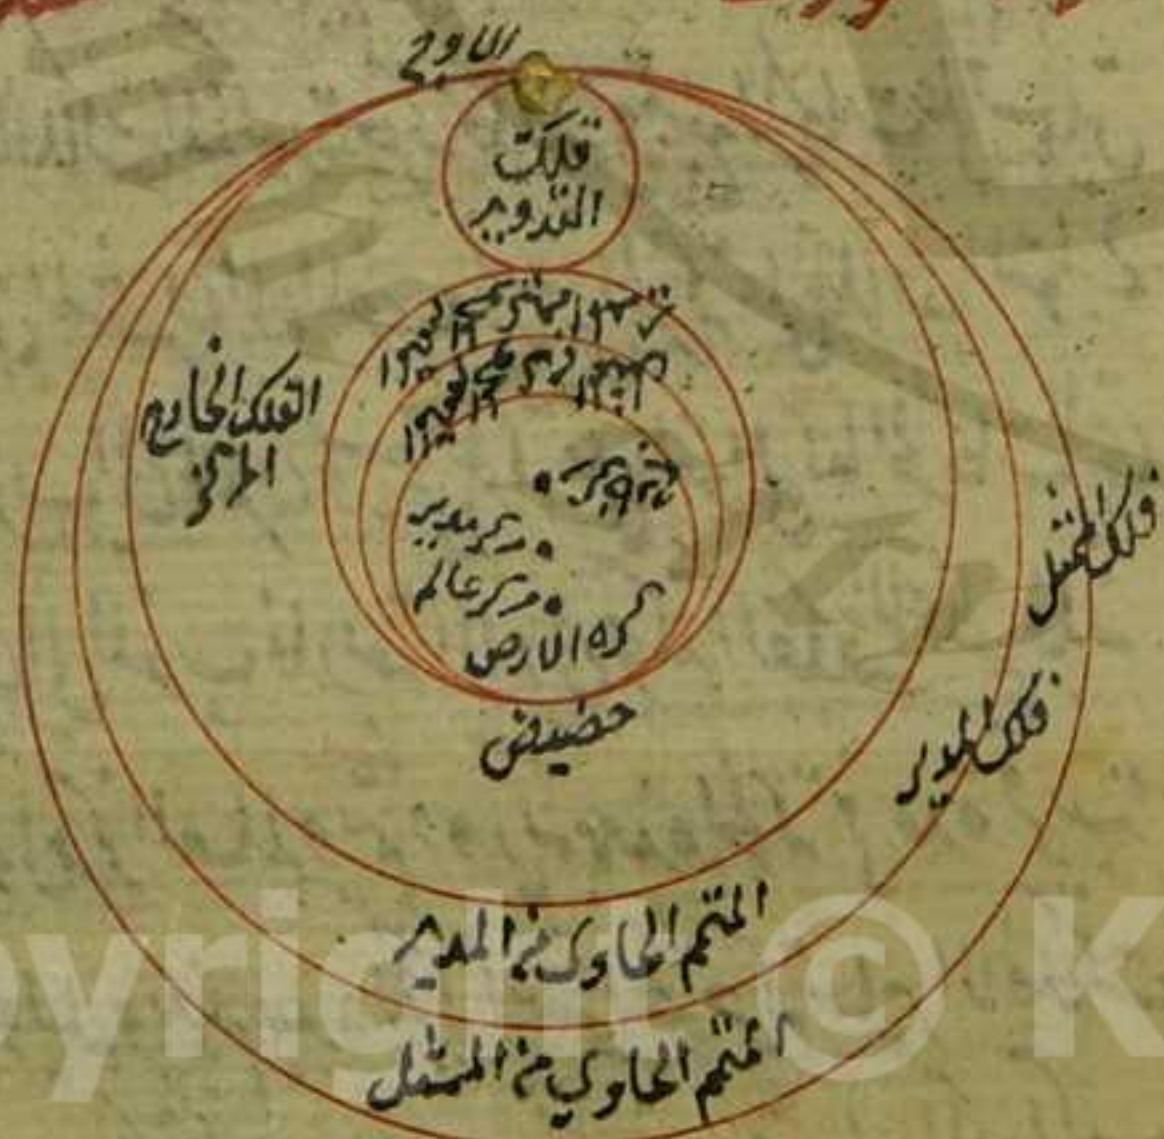 الاوج
فلك
التدوير
الفلك الخارج
المركز
مركز مدير
مركز عالم
كره الارض
حضيض
فلك الممثل
فلك المدير
المتمم الحاوي من المدير
المتمم الحاوي من الممثل
opyright © K